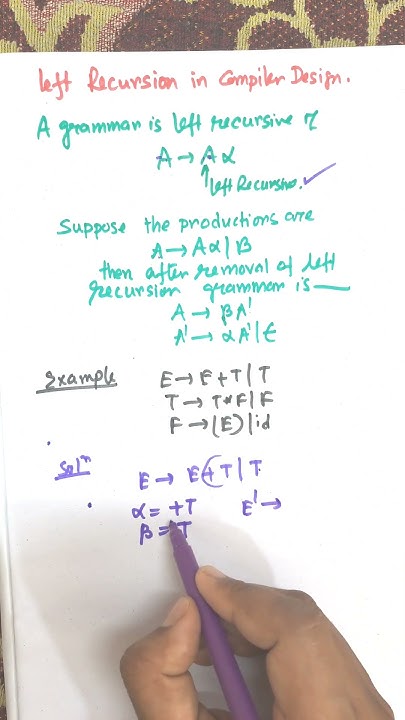 left Recursion in Compiler Design.
A grammar is left recursive if
A → Aα
left Recursive. ✓
Suppose the productions are
A → Aα | β
then after removal of left
recursion grammar is —
A → βA'
A' → αA' | ϵ
Example
E → E + T | T
T → T * F | F
F → (E) | id
Solⁿ
E → E + T | T
α = +T E' →
β = T